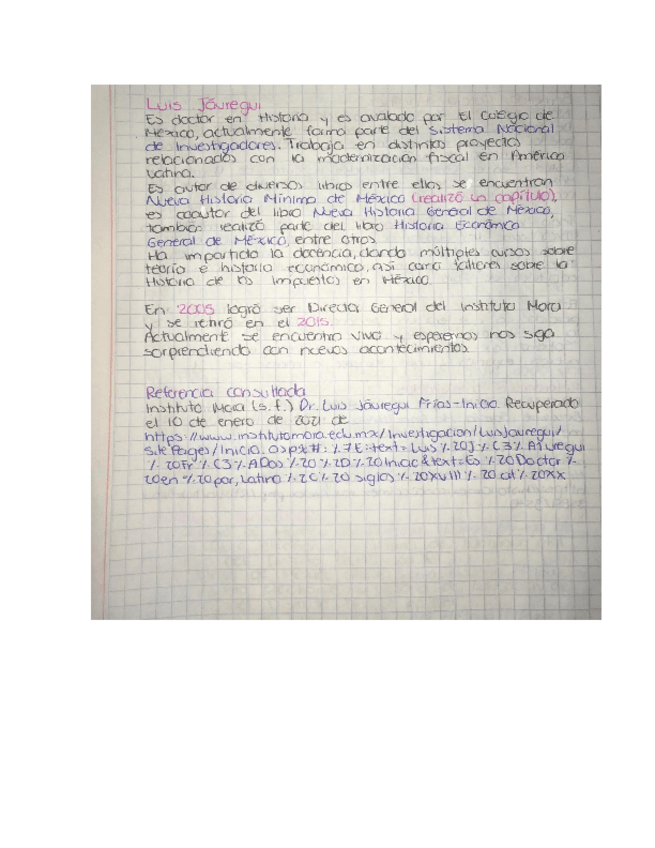 Luis Jáuregui
Es doctor en Historia y es avalado por El Colegio de
México, actualmente forma parte del Sistema Nacional
de Investigadores. Trabaja en distintos proyectos
relacionados con la modernización fiscal en América
Latina.
Es autor de diversos libros entre ellos se encuentran
Nueva Historia Mínima de México (realizó un capítulo),
es coautor del libro Nueva Historia General de México,
también realizó parte del libro Historia Económica
General de México, entre otros.
Ha impartido la docencia, dando múltiples cursos sobre
teoría e historia económica, así como talleres sobre la
Historia de los Impuestos en México.
En 2005 logró ser Director General del Instituto Mora
y se retiró en el 2015.
Actualmente se encuentra vivo y esperemos nos siga
sorprendiendo con nuevos acontecimientos.
Referencia consultada
Instituto Mora (s.f.) Dr. Luis Jáuregui Frías-Inicio. Recuperado
el 10 de enero de 2021 de
https://www.institutomora.edu.mx/Investigacion/LuisJauregui/
SitePages/Inicio.aspx#:%7E:text=Luis%20J%C3%A1uregui
%20Fr%C3%ADas%20%2D%20Inicio&text=Es%20Doctor%
20en%20por,Latina%2C%20siglos%20XVIII%20al%20XX